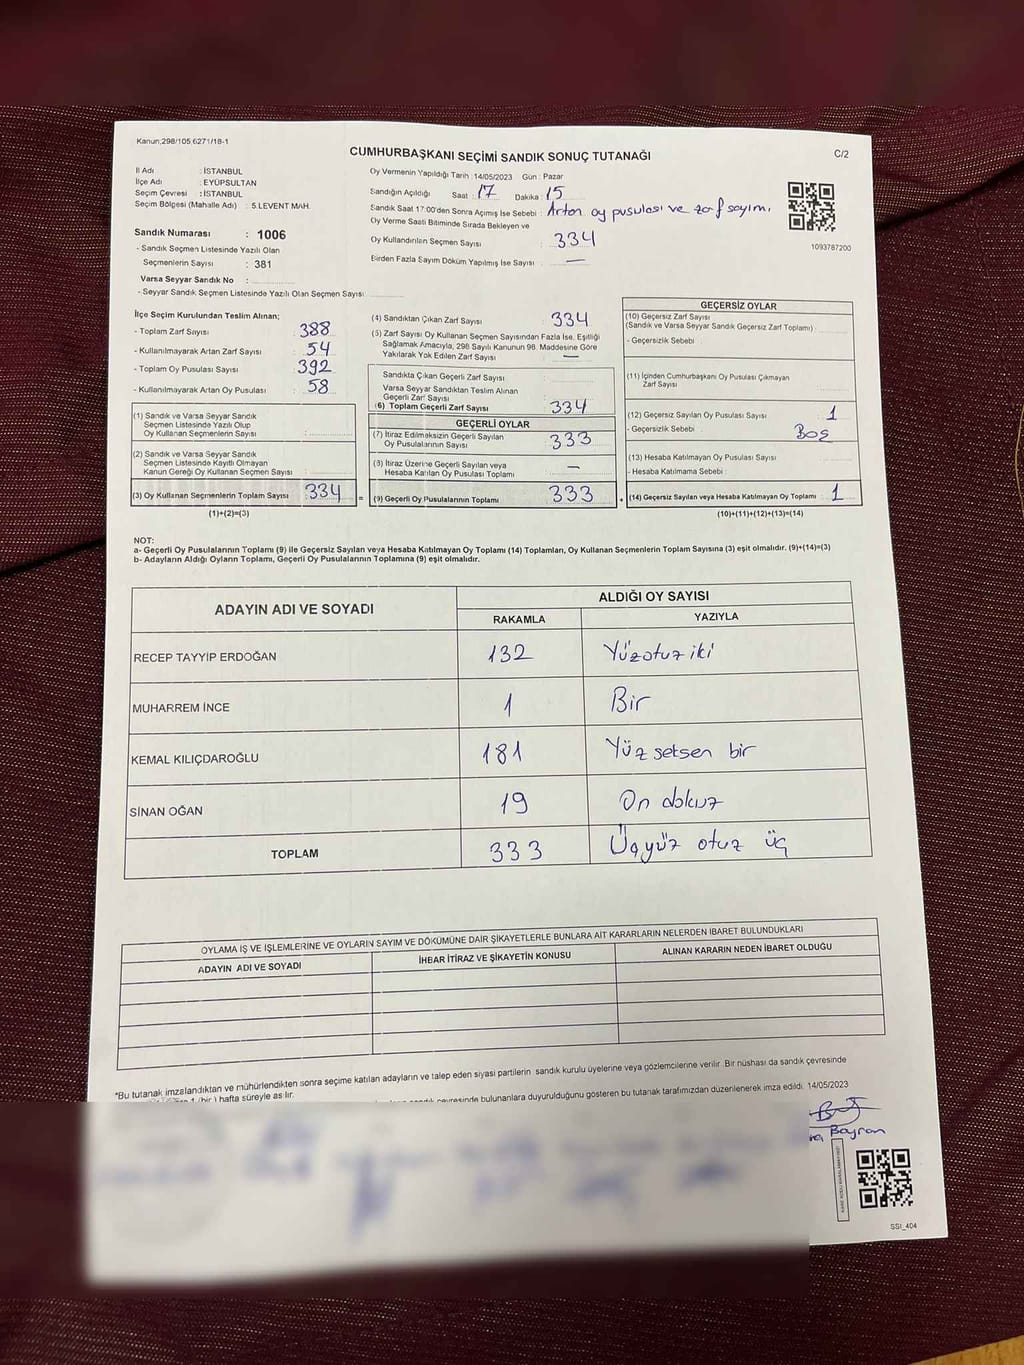 Kanun;298/105 6271/18-1
C/2
CUMHURBAŞKANI SEÇİMİ SANDIK SONUÇ TUTANAĞI
İl Adı : İSTANBUL
İlçe Adı : EYÜPSULTAN
Seçim Çevresi : İSTANBUL
Seçim Bölgesi (Mahalle Adı) : 5.LEVENT MAH.
Sandık Numarası : 1006
- Sandık Seçmen Listesinde Yazılı Olan
Seçmenlerin Sayısı : 381
Varsa Seyyar Sandık No :
- Seyyar Sandık Seçmen Listesinde Yazılı Olan Seçmen Sayısı
Oy Vermenin Yapıldığı Tarih :14/05/2023 Gün : Pazar
Sandığın Açıldığı Saat : 17 Dakika : 15
Sandık Saat 17:00'den Sonra Açımış İse Sebebi : Artan oy pusulası ve zarf sayımı
Oy Verme Saati Bitiminde Sırada Bekleyen ve
Oy Kullandırılan Seçmen Sayısı : 334
Birden Fazla Sayım Döküm Yapılmış İse Sayısı : —
1093787200
İlçe Seçim Kurulundan Teslim Alınan;
- Toplam Zarf Sayısı : 388
- Kullanılmayarak Artan Zarf Sayısı : 54
- Toplam Oy Pusulası Sayısı : 392
- Kullanılmayarak Artan Oy Pusulası : 58
(1) Sandık ve Varsa Seyyar Sandık
Seçmen Listesinde Yazılı Olup
Oy Kullanan Seçmenlerin Sayısı :
(2) Sandık ve Varsa Seyyar Sandık
Seçmen Listesinde Kayıtlı Olmayan
Kanun Gereği Oy Kullanan Seçmen Sayısı :
(3) Oy Kullanan Seçmenlerin Toplam Sayısı : 334 =
(1)+(2)=(3)
(4) Sandıktan Çıkan Zarf Sayısı : 334
(5) Zarf Sayısı Oy Kullanan Seçmen Sayısından Fazla İse, Eşitliği
Sağlamak Amacıyla, 298 Sayılı Kanunun 98. Maddesine Göre
Yakılarak Yok Edilen Zarf Sayısı : —
Sandıkta Çıkan Geçerli Zarf Sayısı :
Varsa Seyyar Sandıktan Teslim Alınan
Geçerli Zarf Sayısı :
(6) Toplam Geçerli Zarf Sayısı : 334
GEÇERLİ OYLAR
(7) İtiraz Edilmeksizin Geçerli Sayılan
Oy Pusulalarının Sayısı : 333
(8) İtiraz Üzerine Geçerli Sayılan veya
Hesaba Katılan Oy Pusulası Toplamı : —
(9) Geçerli Oy Pusulalarının Toplamı : 333 +
GEÇERSİZ OYLAR
(10) Geçersiz Zarf Sayısı
(Sandık ve Varsa Seyyar Sandık Geçersiz Zarf Toplamı) :
- Geçersizlik Sebebi :
(11) İçinden Cumhurbaşkanı Oy Pusulası Çıkmayan
Zarf Sayısı :
(12) Geçersiz Sayılan Oy Pusulası Sayısı : 1
- Geçersizlik Sebebi : Boş
(13) Hesaba Katılmayan Oy Pusulası Sayısı :
- Hesaba Katılmama Sebebi :
(14) Geçersiz Sayılan veya Hesaba Katılmayan Oy Toplamı : 1
(10)+(11)+(12)+(13)=(14)
NOT:
a- Geçerli Oy Pusulalarının Toplamı (9) ile Geçersiz Sayılan veya Hesaba Katılmayan Oy Toplamı (14) Toplamları, Oy Kullanan Seçmenlerin Toplam Sayısına (3) eşit olmalıdır. (9)+(14)=(3)
b- Adayların Aldığı Oyların Toplamı, Geçerli Oy Pusulalarının Toplamına (9) eşit olmalıdır.
ADAYIN ADI VE SOYADI ALDIĞI OY SAYISI
RAKAMLA YAZIYLA
RECEP TAYYİP ERDOĞAN 132 Yüzotuz iki
MUHARREM İNCE 1 Bir
KEMAL KILIÇDAROĞLU 181 Yüz seksen bir
SİNAN OĞAN 19 On dokuz
TOPLAM 333 Üçyüz otuz üç
OYLAMA İŞ VE İŞLEMLERİNE VE OYLARIN SAYIM VE DÖKÜMÜNE DAİR ŞİKAYETLERLE BUNLARA AİT KARARLARIN NELERDEN İBARET BULUNDUKLARI
ADAYIN ADI VE SOYADI İHBAR İTİRAZ VE ŞİKAYETİN KONUSU ALINAN KARARIN NEDEN İBARET OLDUĞU
*Bu tutanak imzalandıktan ve mühürlendikten sonra seçime katılan adayların ve talep eden siyasi partilerin sandık kurulu üyelerine veya gözlemcilerine verilir. Bir nüshası da sandık çevresinde
1 (bir) hafta süreyle asılır.
sandık çevresinde bulunanlara duyurulduğunu gösteren bu tutanak tarafımızdan düzenlenerek imza edildi. 14/05/2023
Bayram
SSİ_404